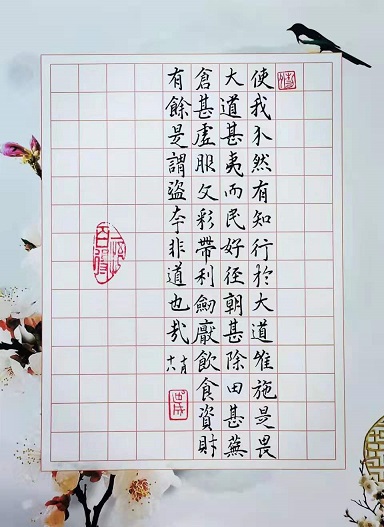 使我介然有知行於大道唯施是畏
大道甚夷而民好徑朝甚除田甚蕪
倉甚虛服文彩帶利劍厭飲食資財
有餘是謂盜夸非道也哉